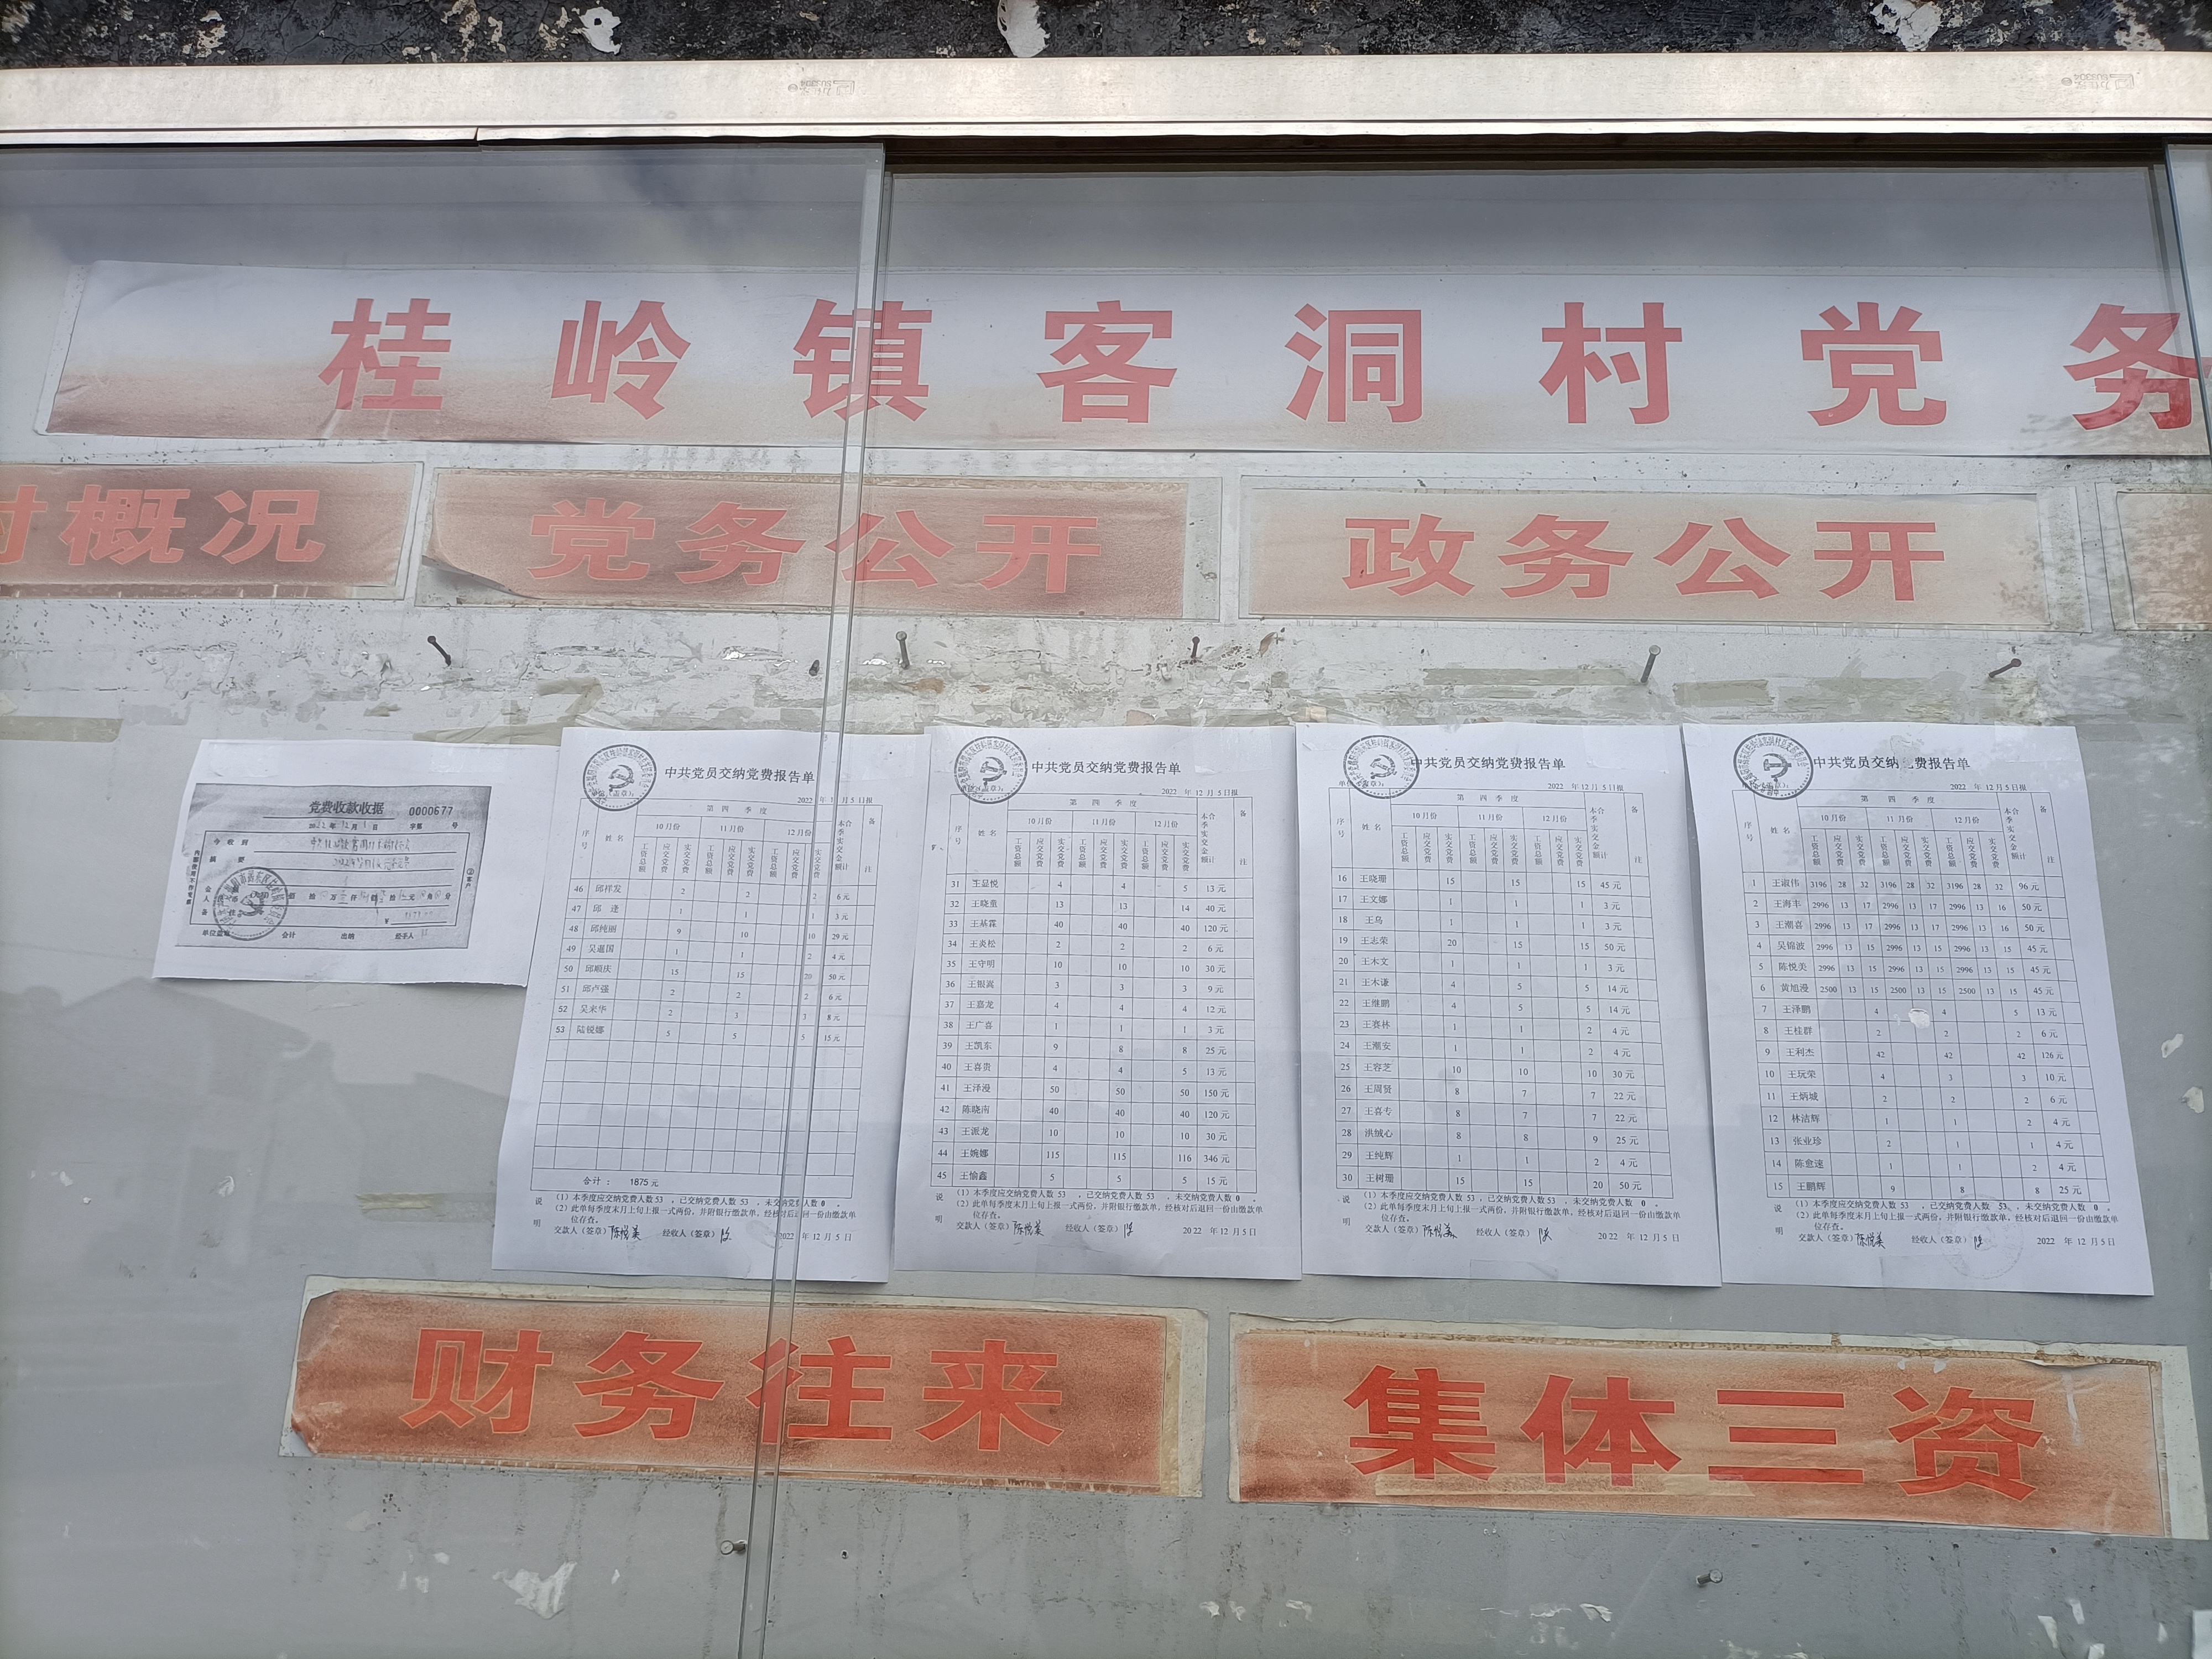 桂岭镇客洞村党务
村概况
党务公开
政务公开
党费收款收据 0000677
2022年12月1日 字第 号
今收到
摘要
单位盖章 会计 出纳 经手人
中共党员交纳党费报告单
2022 年 12 月 5 日报
序号 姓名 第四季度 本季实交金额合计 备注
10月份 11月份 12月份
工资总额 应交党费 实交党费 工资总额 应交党费 实交党费 工资总额 应交党费 实交党费
46 邱祥发 2 2 2 6元
47 邱逢 1 1 1 3元
48 邱纯丽 9 10 10 29元
49 吴暹国 1 1 2 4元
50 邱顺庆 15 15 20 50元
51 邱卢强 2 2 2 6元
52 吴来华 2 3 3 8元
53 陆锐娜 5 5 5 15元
合计： 1875元
说明 （1）本季度应交纳党费人数 53 ，已交纳党费人数 53 ，未交纳党费人数 0 。
（2）此单每季度末月上旬上报一式两份，并附银行缴款单，经核对后退回一份由缴款单
位存查。
交款人（签章）陈悦美 经收人（签章） 2022 年 12 月 5 日
中共党员交纳党费报告单
单位（盖章）： 2022 年 12 月 5 日报
序号 姓名 第四季度 本季实交金额合计 备注
10月份 11月份 12月份
工资总额 应交党费 实交党费 工资总额 应交党费 实交党费 工资总额 应交党费 实交党费
31 王显悦 4 4 5 13元
32 王晓童 13 13 14 40元
33 王基霖 40 40 40 120元
34 王炎松 2 2 2 6元
35 王守明 10 10 10 30元
36 王银嵩 3 3 3 9元
37 王嘉龙 4 4 4 12元
38 王广喜 1 1 1 3元
39 王凯东 9 8 8 25元
40 王喜贵 4 4 5 13元
41 王泽漫 50 50 50 150元
42 陈晓南 40 40 40 120元
43 王派龙 10 10 10 30元
44 王婉娜 115 115 116 346元
45 王愉鑫 5 5 5 15元
说明 （1）本季度应交纳党费人数 53 ，已交纳党费人数 53 ，未交纳党费人数 0 。
（2）此单每季度末月上旬上报一式两份，并附银行缴款单，经核对后退回一份由缴款单
位存查。
交款人（签章）陈悦美 经收人（签章） 2022 年 12 月 5 日
中共党员交纳党费报告单
单位（盖章）： 2022 年 12 月 5 日报
序号 姓名 第四季度 本季实交金额合计 备注
10月份 11月份 12月份
工资总额 应交党费 实交党费 工资总额 应交党费 实交党费 工资总额 应交党费 实交党费
16 王晓珊 15 15 15 45元
17 王文娜 1 1 1 3元
18 王乌 1 1 1 3元
19 王志荣 20 15 15 50元
20 王木文 1 1 1 3元
21 王木谦 4 5 5 14元
22 王继鹏 4 5 5 14元
23 王赛林 1 1 2 4元
24 王潮安 1 1 2 4元
25 王容芝 10 10 10 30元
26 王周贤 8 7 7 22元
27 王喜专 8 7 7 22元
28 洪绒心 8 8 9 25元
29 王纯辉 1 1 2 4元
30 王树珊 15 15 20 50元
说明 （1）本季度应交纳党费人数 53 ，已交纳党费人数 53 ，未交纳党费人数 0 。
（2）此单每季度末月上旬上报一式两份，并附银行缴款单，经核对后退回一份由缴款单
位存查。
交款人（签章）陈悦美 经收人（签章） 2022 年 12 月 5 日
中共党员交纳党费报告单
2022 年 12 月 5 日报
序号 姓名 第四季度 本季实交金额合计 备注
10月份 11月份 12月份
工资总额 应交党费 实交党费 工资总额 应交党费 实交党费 工资总额 应交党费 实交党费
1 王淑伟 3196 28 32 3196 28 32 3196 28 32 96元
2 王海丰 2996 13 17 2996 13 17 2996 13 16 50元
3 王潮喜 2996 13 17 2996 13 17 2996 13 16 50元
4 吴锦波 2996 13 15 2996 13 15 2996 13 15 45元
5 陈悦美 2996 13 15 2996 13 15 2996 13 15 45元
6 黄旭漫 2500 13 15 2500 13 15 2500 13 15 45元
7 王泽鹏 4 4 5 13元
8 王桂群 2 2 2 6元
9 王利杰 42 42 42 126元
10 王玩荣 4 3 3 10元
11 王炳城 2 2 2 6元
12 林洁辉 1 1 2 4元
13 张业珍 2 1 1 4元
14 陈愈速 1 1 2 4元
15 王鹏辉 9 8 8 25元
说明 （1）本季度应交纳党费人数 53 ，已交纳党费人数 53 ，未交纳党费人数 0 。
（2）此单每季度末月上旬上报一式两份，并附银行缴款单，经核对后退回一份由缴款单
位存查。
交款人（签章）陈悦美 经收人（签章） 2022 年 12 月 5 日
财务往来
集体三资